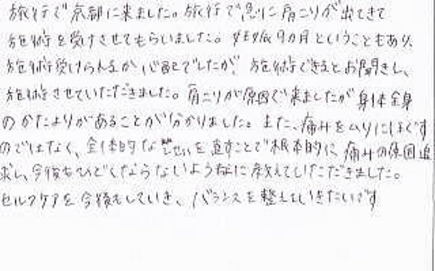 旅行で京都に来ました。旅行で急に肩こりが出てきて
施術を受けさせてもらいました。妊娠9カ月ということもあり、
施術受けられるか心配でしたが、施術できるとお聞きし、
施術させていただきました。肩こりが原因で来ましたが身体全身
のかたよりがあることが分かりました。また、痛みをムリにほぐす
のではなく、全体的な を直すことで根本的に、痛みの原因追
求し、今後もひどくならないように教えていただきました。
セルフケアを今後もしていき、バランスを整えていきたいです